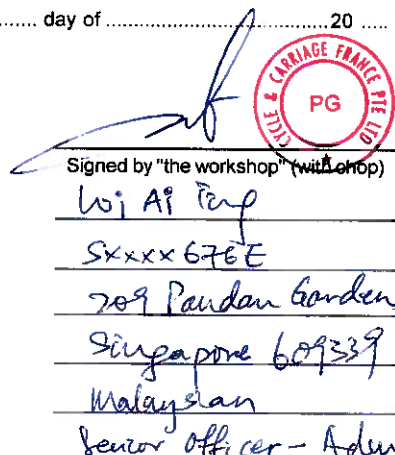 ........ day of ................................ 20 .....
CYCLE & CARRIAGE FRANCE PTE LTD
PG
Signed by "the workshop" (with chop)
Loi Ai
Sxxxx676E
209 Pandan Garden
Singapore 609339
Malaysian
Senior Officer - Adm